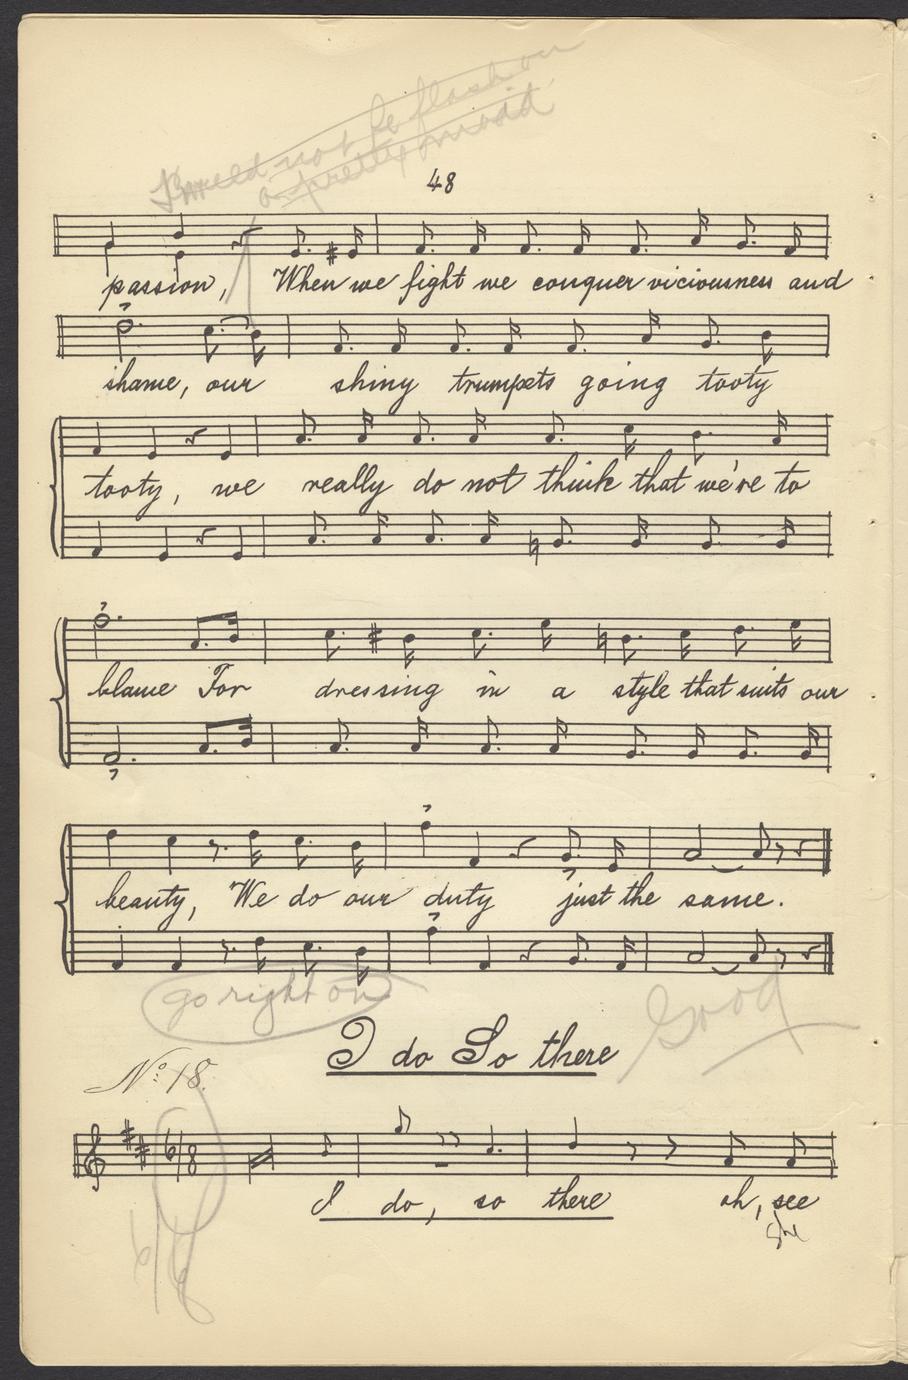 would not be flash on
a pretty maid
48
passion, When we fight we conquer viciousness and
shame, our shiny trumpets going tooty
tooty, we really do not think that we're to
blame For dressing in a style that suits our
beauty, We do our duty just the same.
go right on
Good
I do So there
No. 18.
6/8
I do, so there oh, see
she
6/8